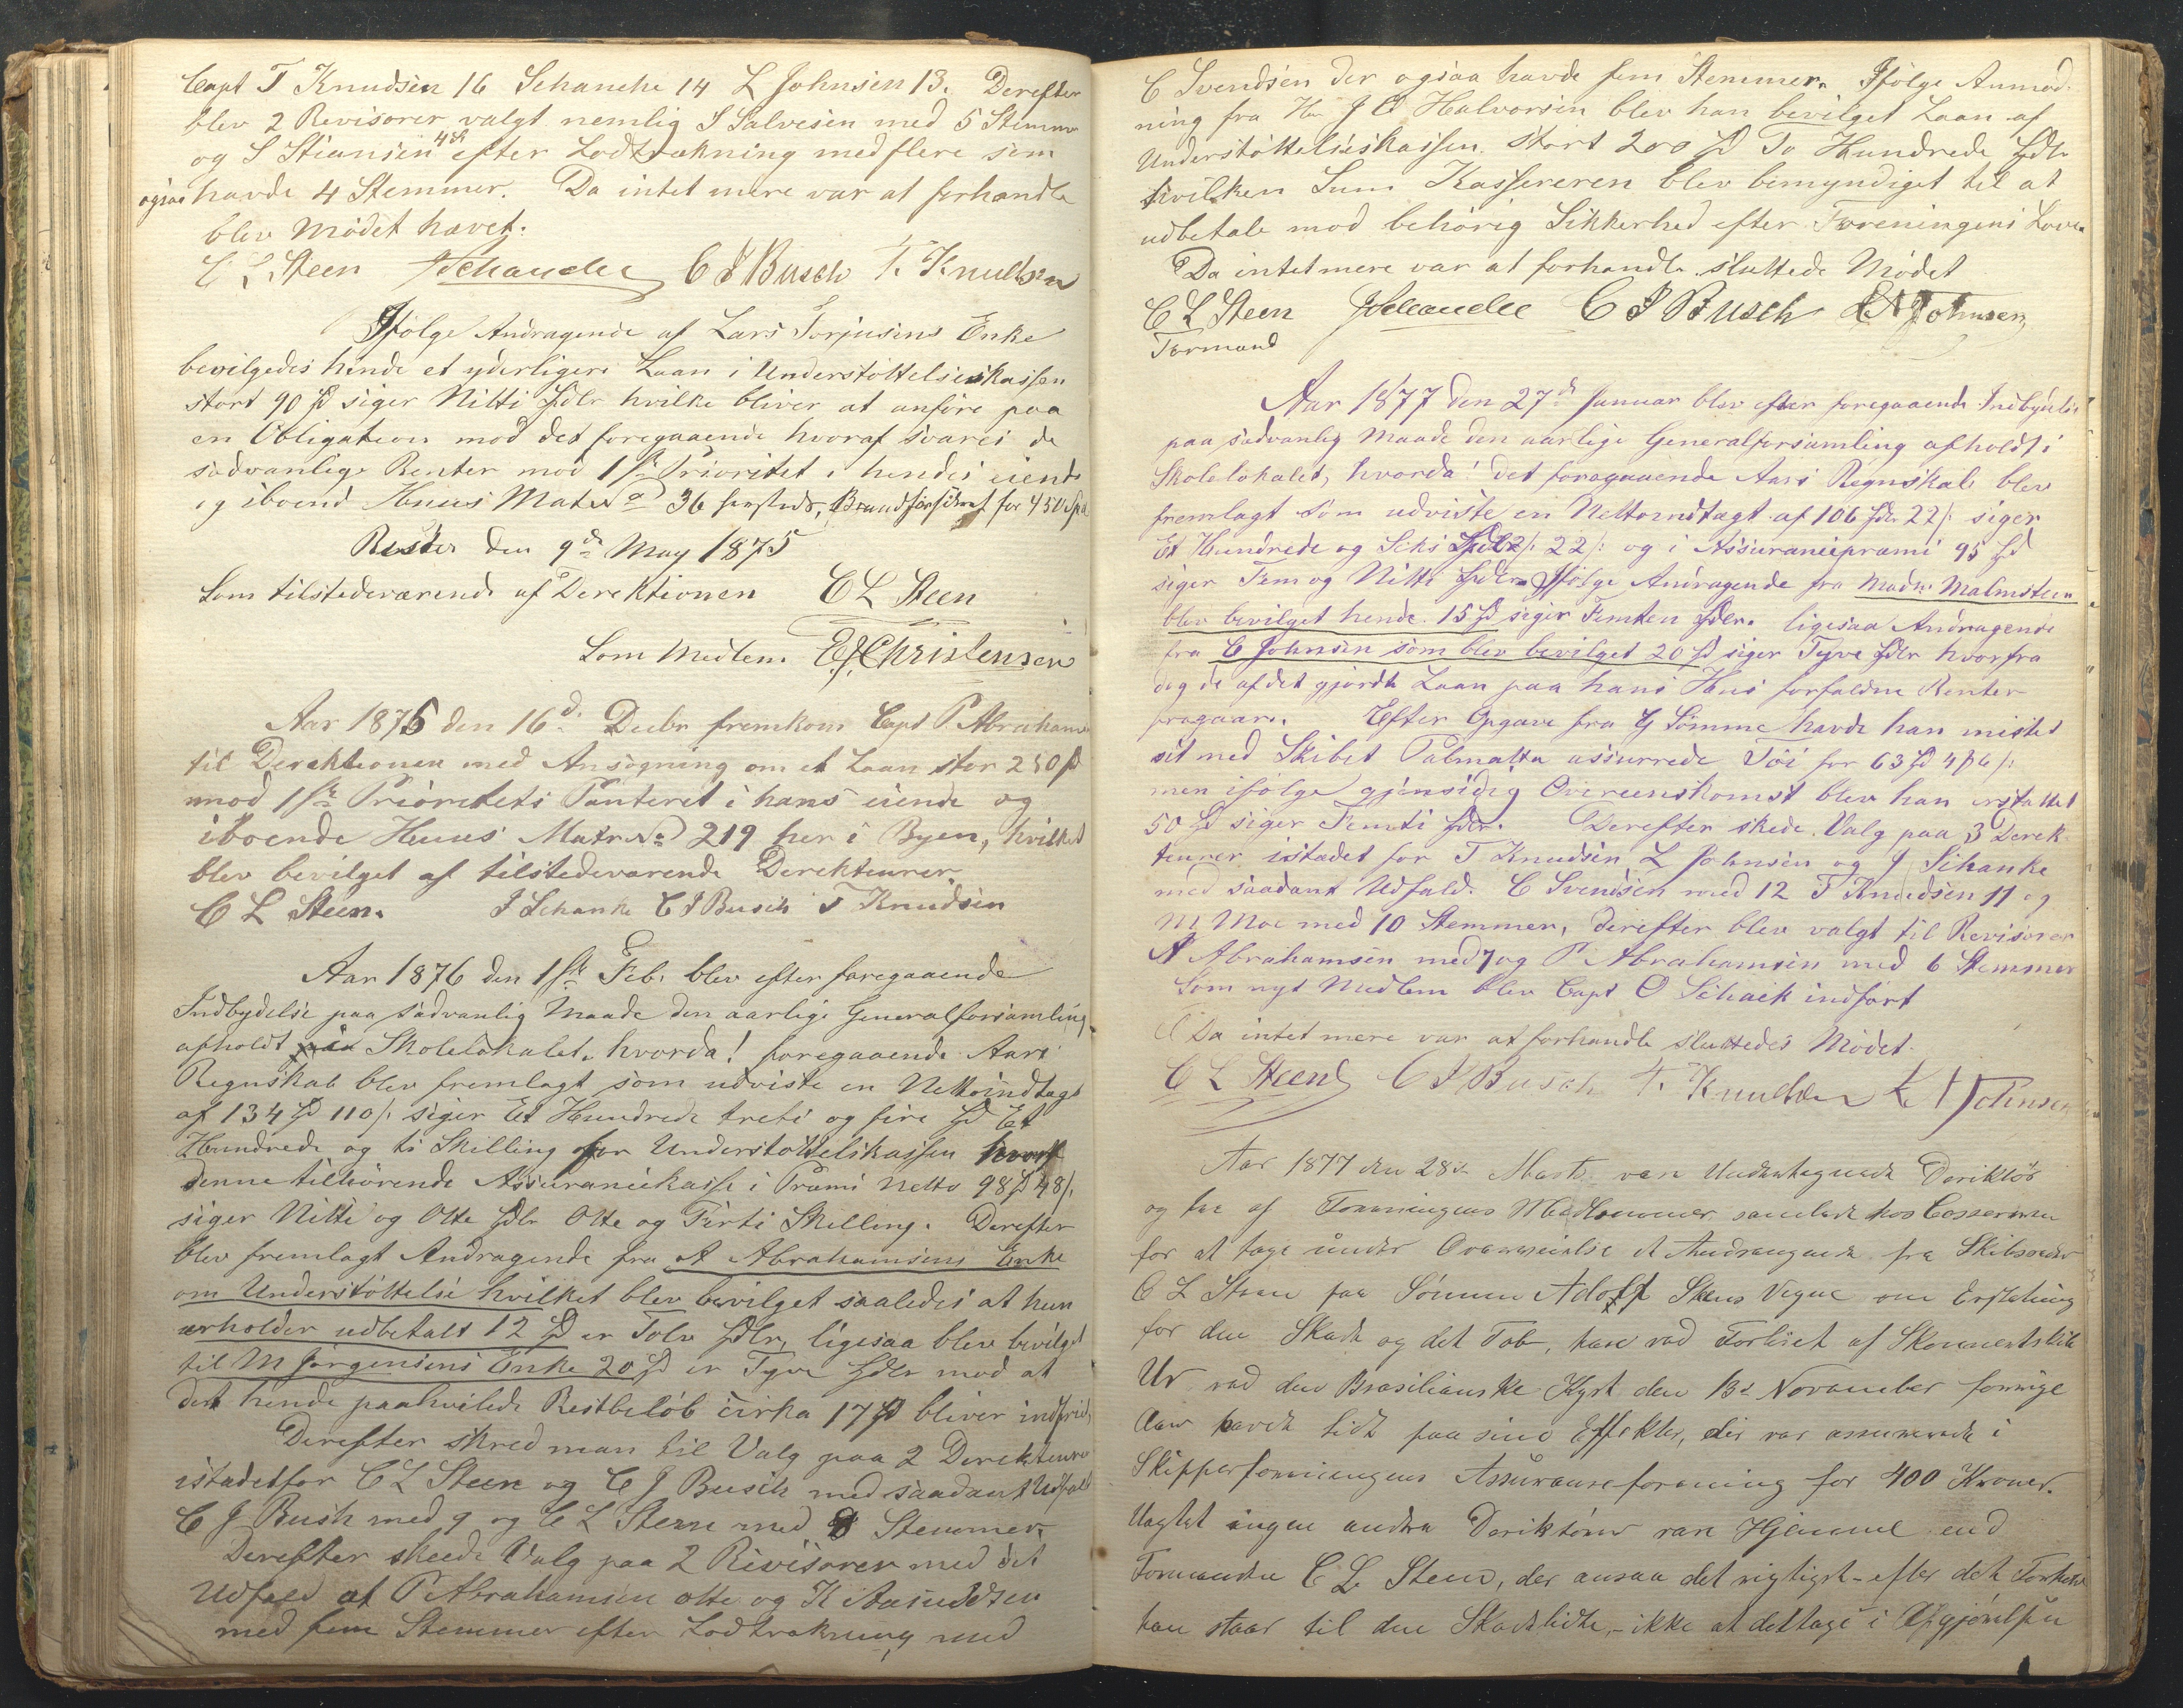 Capt T Knudsen 16 Schanche 14 L Johnsen 13. Derefter
blev 2 Revisorer valgt nemlig S Salvesen med 5 Stemmer
og S Stiansen 4 efter Lodtrækning med flere som
ogsaa havde 4 Stemmer. Da intet mere var at forhandle
blev Mödet hævet.
C L Steen JSchanche C J Busch T. Knudsen
Ifölge Andragende af Lars Torjusens Enke
bevilgedes hende et yderligere Laan i Understöttelseskassen
stort 90 Sp siger Nitti Spdlr hvilke bliver at anföre paa
en Obligation mod det foregaaende hvoraf svares de
sædvanlige Renter mod 1ste Prioritet i hendes eiende
og iboende Huus Mat No 36 her, Brandforsikret for 450 Spd
Risöer den 9de May 1875
Som tilstedeværende af Derektionen C L Steen
Som Medlem. E J Christensen
Aar 1875 den 16d Decbr fremkom Capt P. Abrahamsen
til Derektionen med Ansögning om et Laan stor 250 Sp
mod 1ste Prioritets Panteret i hans eiende og
iboende Huus Matr No 219 her i Byen, hvilket
blev bevilget af tilstedeværende Derekteurer
C L Steen. J Schanke C J Busch T Knudsen
Aar 1876 den 1ste Feb. blev efter foregaaende
Indbydelse paa sædvanlig Maade den aarlige Generalforsamling
afholdt paa Skolelokalet. hvorda! foregaaende Aars
Regnskab blev fremlagt som udviste en Nettoindtægt
af 134 Sp 110/: siger Et Hundrede treti og fire Sp Et
Hundrede og ti Skilling for Understöttelskassen
denne tilhörende Assurancekasse i Præmi Netto 98 Sp 48/.
siger Nitti og Otte Spdlr Otte og Firti Skilling. Derefter
blev fremlagt Andragende fra A Abrahamsens Enke
om Understöttelse hvilket blev bevilget saaledes at hun
erholder udbetalt 12 Sp er Tolv Spdlr, ligesaa blev bevilget
til M Jörgensens Enke 20 Sp er Tyve Spdlr mod at
det hende paahvilede Restbelöb cirka 17 Sp bliver indfriet,
Derefter skred man til Valg paa 2 Derekteurer
istadetfor C L Steen og C J Busch med saadant Udfald
C J Bush med 9 og C L Steen med 8 Stemmer.
Derefter skeede Valg paa 2 Revisorer med det
Udfald at P Abrahamsen otte og K Aanudsen
med fem Stemmer efter Lodtrækning med
C Svendsen der ogsaa havde fem Stemmer. Ifölge Anmod-
ning fra Hr J O Halvorsen blev han bevilget Laan af
Understöttelseskassen stort 200 Sp To Hundrede Spdlr
hvilken Sum Kassereren blev bemyndiget til at
udbetale mod behörig Sikkerhed efter Foreningens Love.
Da intet mere var at forhandle sluttede Mödet
C L Steen JSchanche C J Busch L N Johnsen
Formand
Aar 1877 den 27de Januar blev efter foregaaende Indbydelse
paa sædvanlig Maade den aarlige Generalforsamling afholdt i
Skolelokalet, hvorda! det foregaaende Aars Regnskab blev
fremlagt som udviste en Nettoindtægt af 106 Spdlr 22/: siger
Et Hundrede og Seks Spdlr 22/: og i Assurancepræmi 95 Sp
siger Fem og Nitti Spdlr. Ifölge Andragende fra Madm Malmsteen
blev bevilget hende 15 Sp siger Femten Spdlr. ligesaa Andragende
fra C Johnsen som blev bevilget 20 Sp siger Tyve Spdlr hvorfra
dog de af det gjordte Laan paa hans Hus forfaldne Renter
fragaar. Efter Opgave fra G Sömme havde han mistet
sit med Skibet Palmatta assurrede Töi for 63 Sp 4 /:
men ifölge gjensidig Overeenskomst blev han erstattet
50 Sp siger Femti Spdlr. Derefter skede Valg paa 3 Derek-
teurer istadet for T Knudsen L Johnsen og J Schanke
med saadant Udfald. C Svendsen med 12 T Knudsen 11 og
M Moe med 10 Stemmer, derefter blev valgt til Revisorer
A Abrahamsen med 7 og P Abrahamsen med 6 Stemmer
Som nyt Medlem blev Capt O Schack indfört
Da intet mere var at forhandle sluttedes Mödet.
C L Steen C J Busch T. Knudsen L N Johnsen
Aar 1877 den 28de Marts vare Undertegnede Derektör
og tre af Foreningens Medlemmer samlede hos Casserern
for at tage under Overveielse et Andragende fra Skibsreder
C L Steen paa Sönnen Adolf Steens Vegne om Erstatning
for den Skade og det Tab, han ved Forliset af Skonnertskib
Ur ved den Brasilianske Kyst den 13de November forrige
Aar havde lidt paa sine Effekter, der var assurerede i
Skipperforeningens Assuranseforening for 400 Kroner.
Uagtet ingen andre Derektörer vare Hjemme end
Formanden C L Steen, der ansaa det rigtigst - efter det Forhold
han staar til den Skadelidte, - ikke at deltage i Afgjörelsen